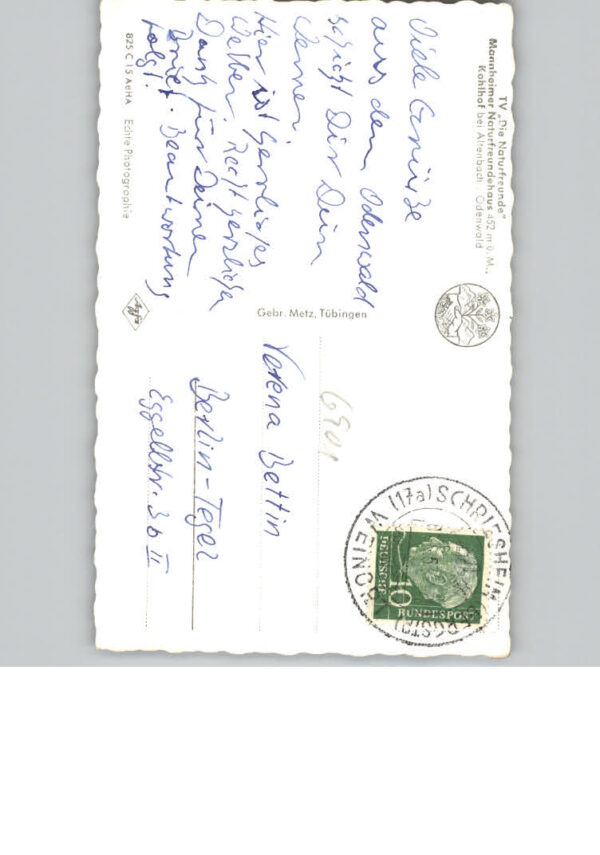 TV „Die Naturfreunde"
Mannheimer Naturfreundehaus 452 m ü. M.,
Kohlhof bei Altenbach / Odenwald
Viele Grüüße
aus dem Odenwald
schickt Dir Dein
Werner.
Hier ist herrliches
Wetter. Recht herzlichen
Dank für Deinen
Brief. Beantwortung
folgt!
825 C 15 AeHA Echte Photographie
Gebr. Metz, Tübingen
Agfa
6901
Verena Bettin
Berlin-Tegel
Eggellstr. 3b II
(17a) SCHRIESHEIM
(BERGSTR)
WEINORT
DEUTSCHE
BUNDESPOST
10